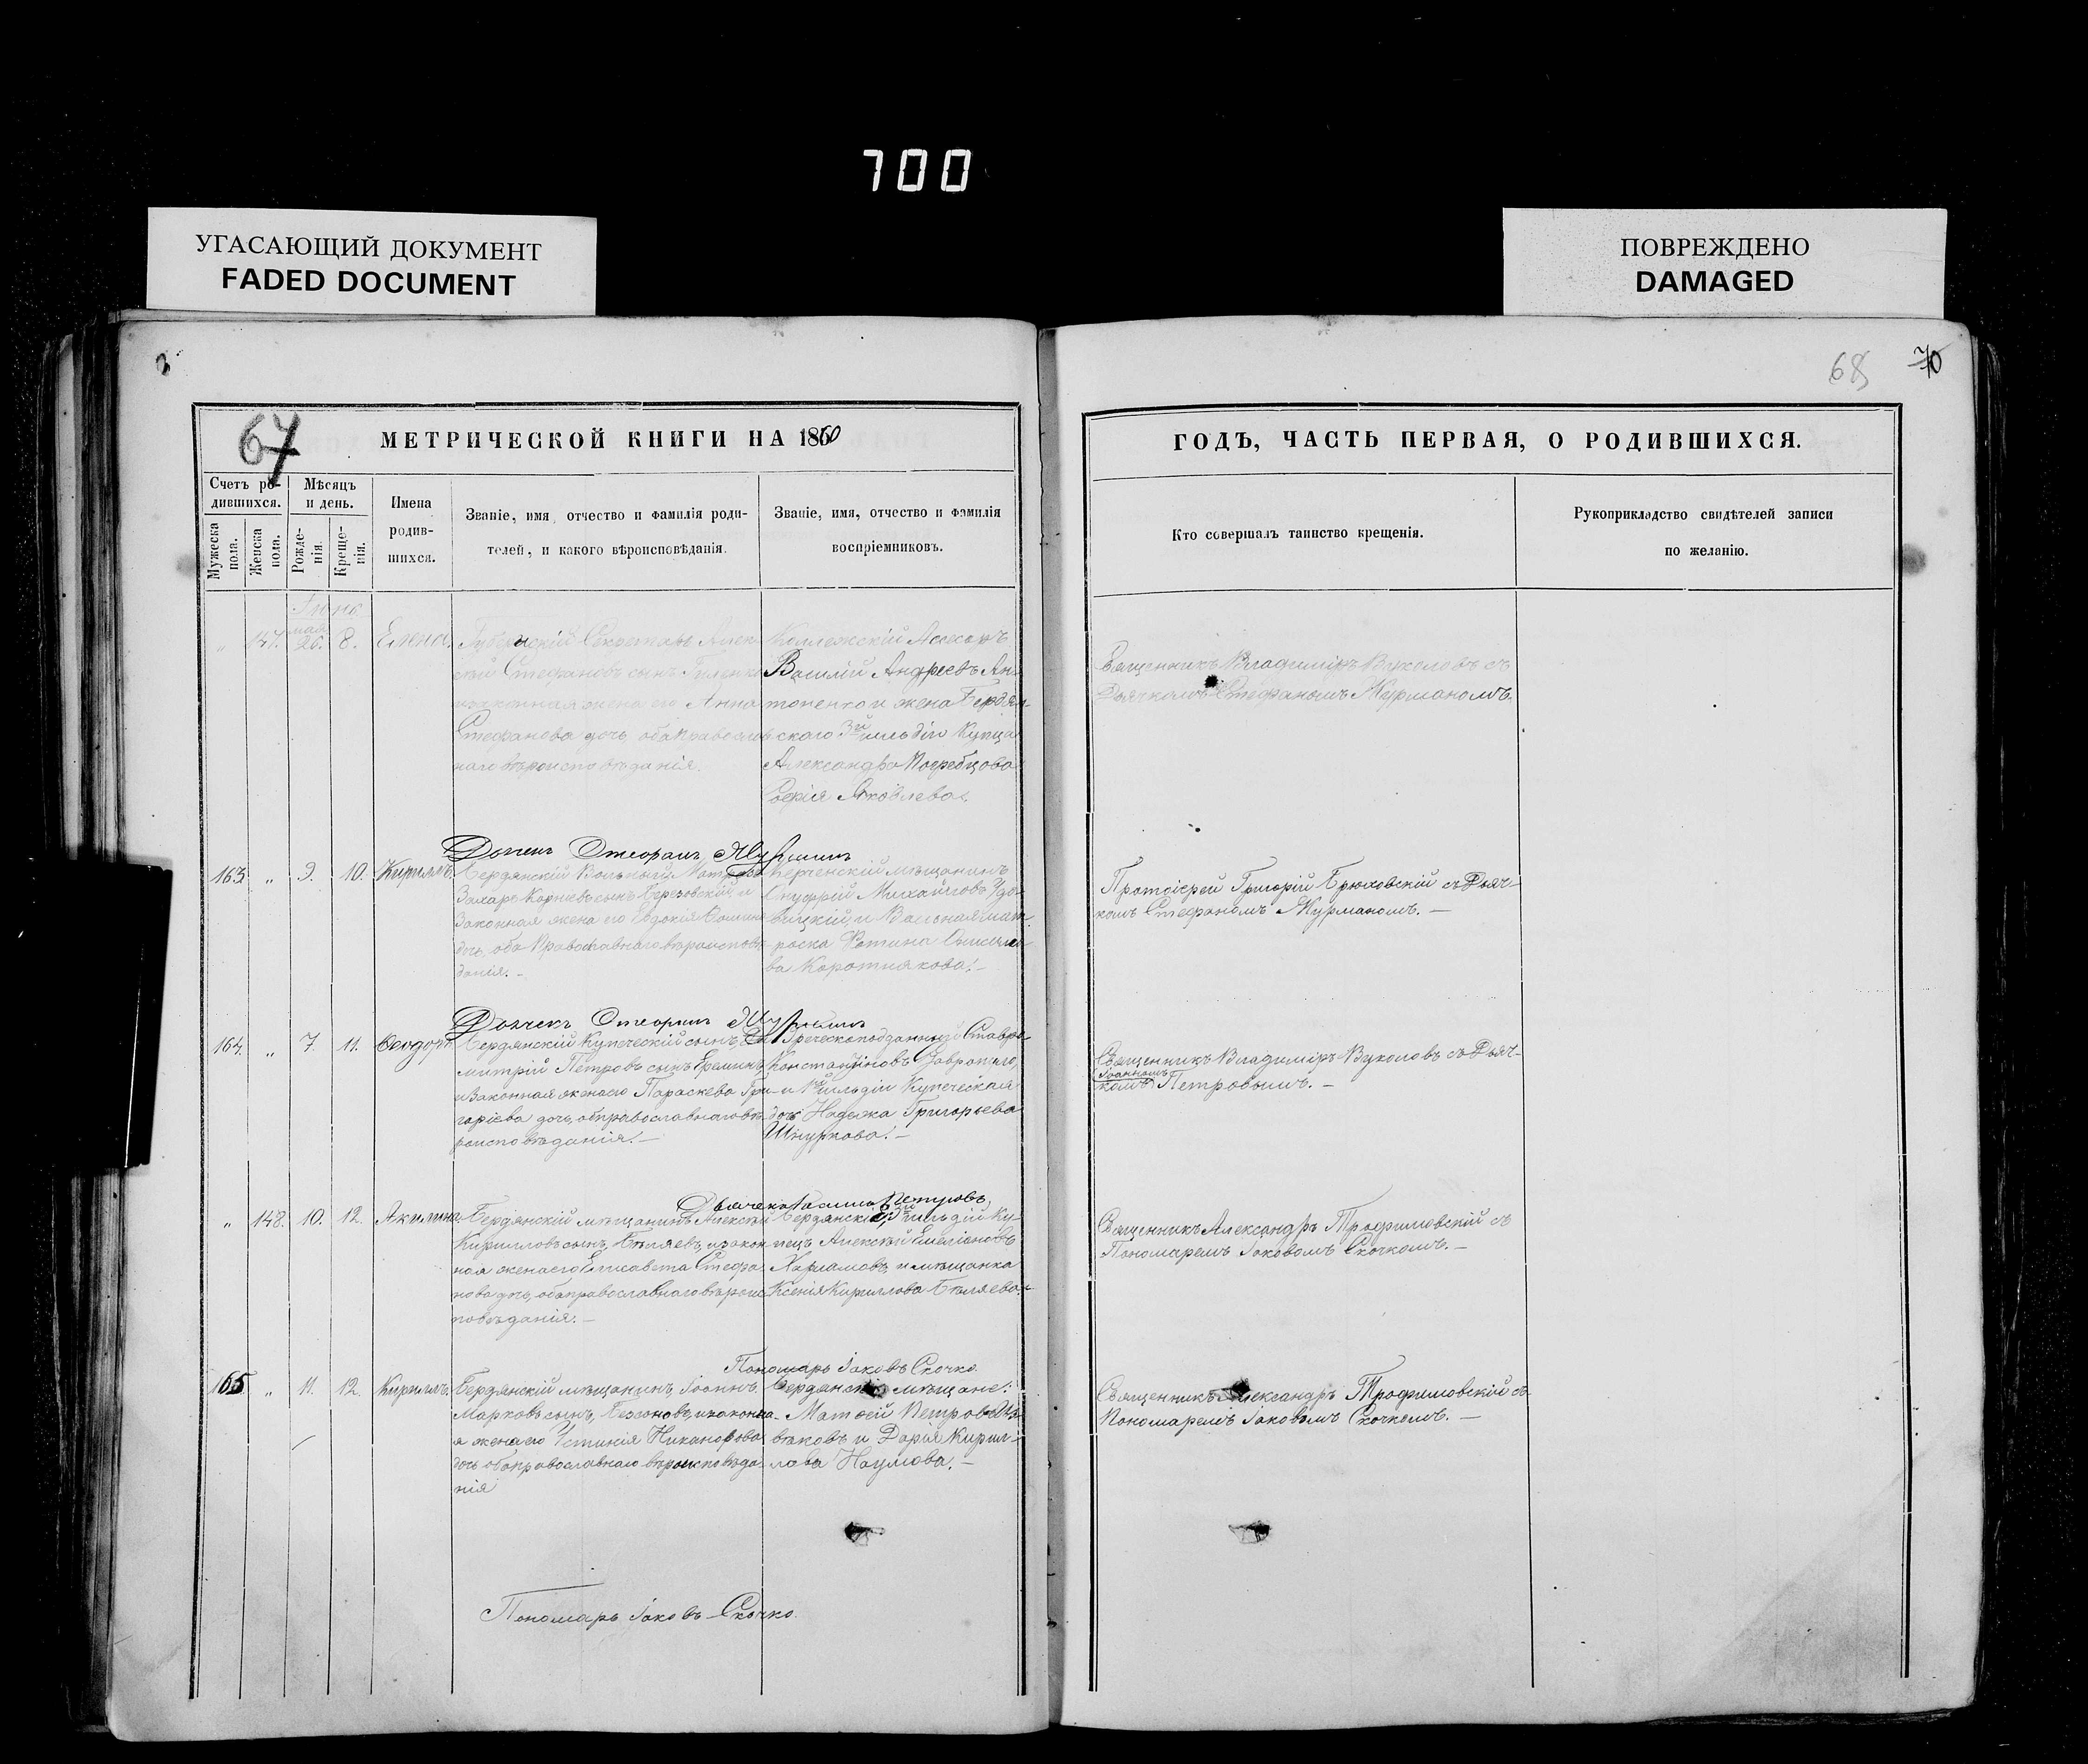 700
УГАСАЮЩИЙ ДОКУМЕНТ
FADED DOCUMENT
ПОВРЕЖДЕНО
DAMAGED
68 70
67
МЕТРИЧЕСКОЙ КНИГИ НА 1860
ГОДЪ, ЧАСТЬ ПЕРВАЯ, О РОДИВШИХСЯ.
Счетъ ро-
дившихся.
Мужеска пола.
Женска пола.
Мѣсяцъ
и день.
Рожде-
нія.
Креще-
нія.
Имена
родив-
шихся.
Званіе, имя, отчество и фамилія роди-
телей, и какого вѣроисповѣданія.
Званіе, имя, отчество и фамилія
воспріемниковъ.
Кто совершалъ таинство крещенія.
Рукоприкладство свидѣтелей записи
по желанію.
Іюнь
„ 147. мая 26. 8. Елена.
Губернскій Секретарь Алек-
сій Стефановъ сынъ
и законная жена его Анна
Стефанова дочь, оба православ-
наго вѣроисповѣданія.
Коллежскій Асесоръ
Василій Андреевъ Ан-
тоненко и жена Бердян-
скаго 3й гильдіи Купца
Александра Погребцова
Софія Яковлева.
Священникъ Владиміръ Вуколовъ съ
Дьячкомъ Стефаномъ Журманомъ.
Дьячекъ Стефанъ Журманъ
163. „ 9. 10. Кириллъ.
Бердянскій Вольный Матросъ
Захаръ Корнѣевъ сынъ Березовскій и
Законная жена его Евдокія Фомина
дочь, оба Православнаго вѣроисповѣ-
данія. –
Керченскій мѣщанинъ
Онуфрій Михайловъ Удо-
вицкій и Вольная мат-
роска Фотина
ва Коротнякова. –
Протоіерей Григорій Брюховскій съ Дьяч-
комъ Стефаномъ Журманомъ. –
Дьячекъ Стефанъ Журманъ
164. „ 7. 11. Ѳеодоръ.
Бердянскій Купеческій сынъ Ди-
митрій Петровъ сынъ Ереминъ,
и Законная жена его Параскева Гри-
горіева дочь, оба православнаго вѣ-
роисповѣданія. –
Греческоподданный Ставро
Константиновъ Гавропуло,
и 1й гильдіи Купеческая
дочь Надежа Григорьева
Шнуркова. –
Священникъ Владиміръ Вуколовъ съ Дьяч-
Іоанномъ
комъ Петровымъ. –
Дьячекъ Іоаннъ Петровъ
„ 148. 10. 12. Акилина.
Бердянскій мѣщанинъ Алексѣй
Кирилловъ сынъ, Бѣляевъ, и закон-
ная жена его Елисавета Стефа-
нова дочь, оба православнаго вѣроис-
повѣданія. –
Бердянскій 3й гильдіи Ку-
пецъ Алексѣй Емеліановъ
Харламовъ, и мѣщанка
Ксенія Кириллова Бѣляева. –
Священникъ Александръ Трофимовскій съ
Пономаремъ Іаковомъ Скочкомъ. –
Пономарь Іаковъ Скочко.
165. „ 11. 12. Кириллъ.
Бердянскій мѣщанинъ, Іоаннъ
Марковъ сынъ, Безсоновъ, и законна-
я жена его Устинія Никанорова
дочь оба православнаго вѣроисповѣда-
нія
Бердянскіе мѣщане:
Матѳей Петровъ
вѣковъ и Дарія Кирил-
лова Наумова. –
Священникъ Александръ Трофимовскій съ
Пономаремъ Іаковомъ Скочкомъ. –
Пономарь Іаковъ Скочко.